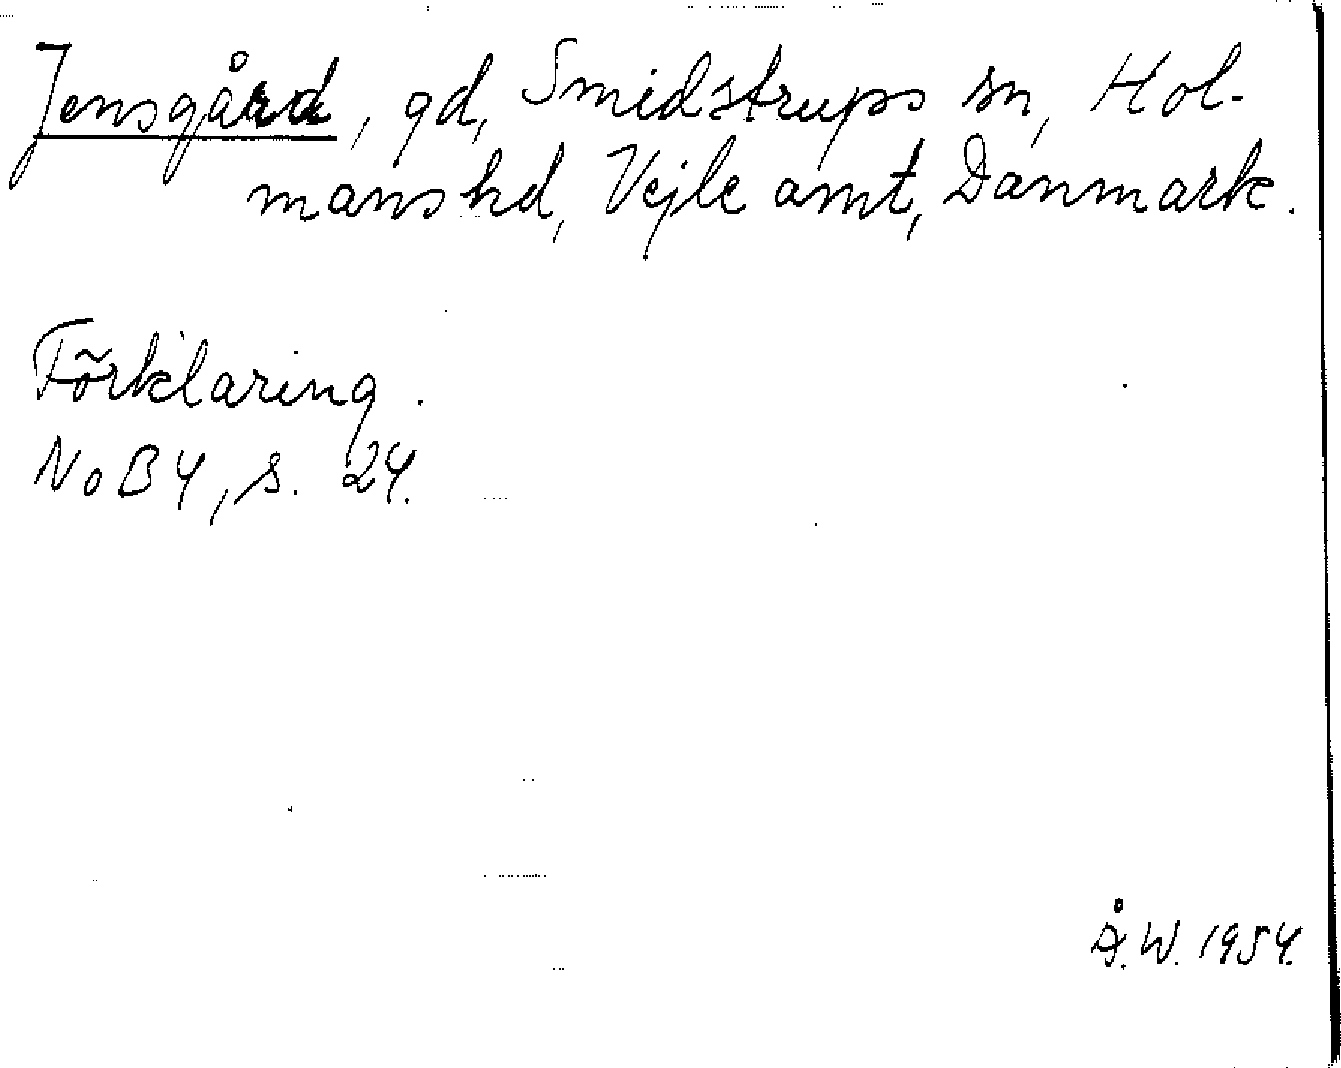 Jensgård, gd, Smidstrups sn, Hol-
mans hd, Vejle amt, Danmark.
Förklaring.
NoB 4, s. 24.
Å.W. 1954.